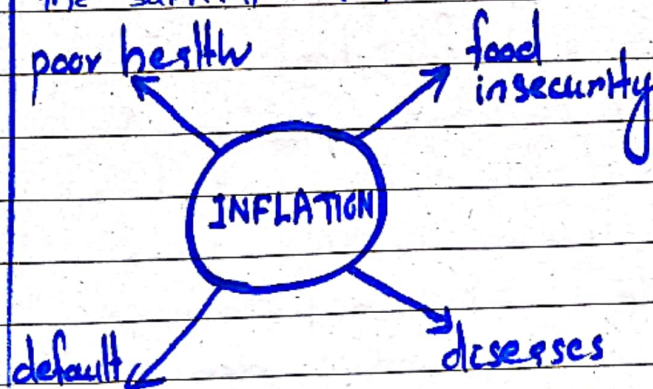 The
poor health
food
insecurity
INFLATION
default
diseases